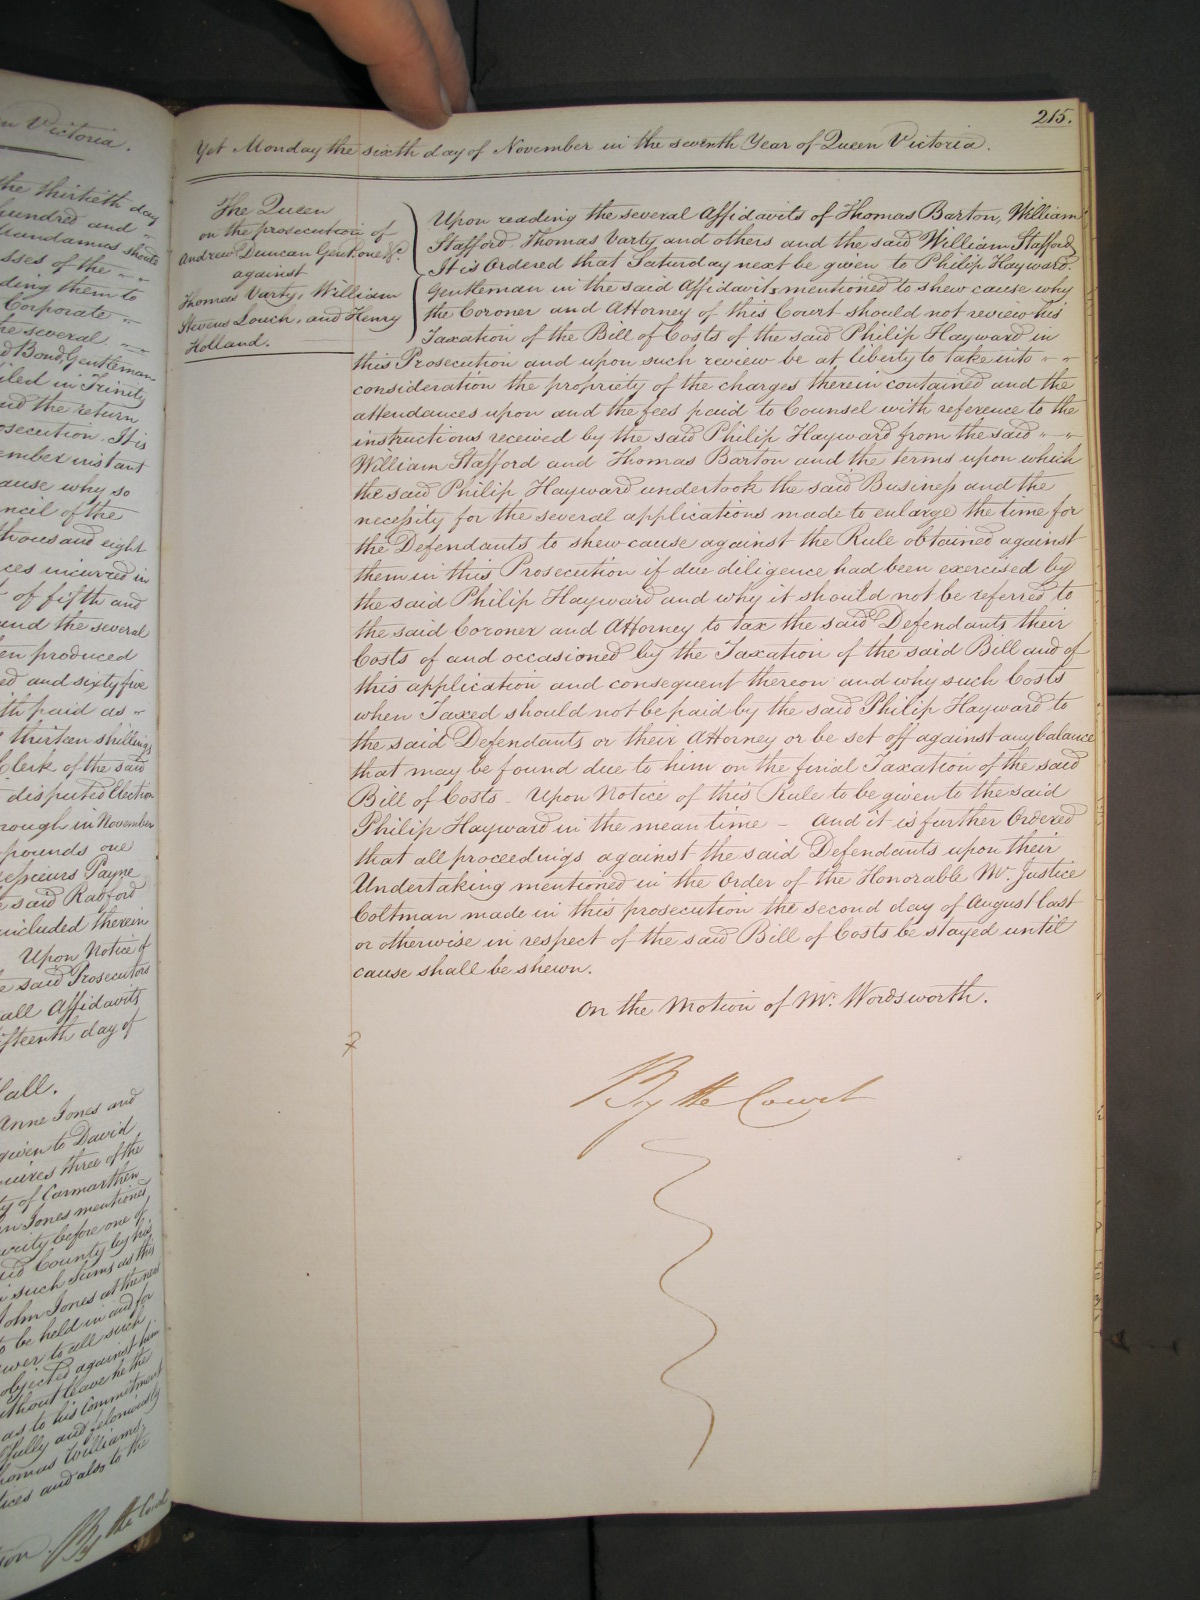 n Victoria.
the thirtieth day
hundred and
Mandamus should
sses of the
ding them to
Corporate
he several
d Bond, Gentleman
iled in Trinity
and the return
osecution. It is
ember instant
ause why so
ncil of the
thousand eight
ces incurred in
of fifth and
and the several
en produced
ed and sixty five
th paid as
thirteen shillings
Clerk of the said
disputed Election
rough in November
pounds one
Payne
e said Radford
included therein
Upon Notice of
e said Prosecutors
all Affidavits
fteenth day of
Hall.
Anne Jones and
given to David
uires three of the
ty of Carmarthen
n Jones mentioned
urity before one of
aid County by his
n such sums as this
John Jones at the next
to be held in and for
wer to all such
objected against him
ithout leave he the
as to his Commitment
fully and feloniously
homas Williams,
ices and also to the
By the Court
ion.
215.
Yet Monday the sixth day of November in the seventh Year of Queen Victoria.
The Queen
on the prosecution of
Andrew Duncan Gent. one &c.
against
Thomas Varty, William
Stevens Louch, and Henry
Holland.
Upon reading the several Affidavits of Thomas Barton, William
Stafford, Thomas Varty and others and the said William Stafford,
It is Ordered that Saturday next be given to Philip Hayward
Gentleman in the said Affidavits mentioned to shew cause why
the Coroner and Attorney of this Court should not review his
Taxation of the Bill of Costs of the said Philip Hayward in
this Prosecution and upon such review be at liberty to take into
consideration the propriety of the charges therein contained and the
attendances upon and the fees paid to Counsel with reference to the
instructions received by the said Philip Hayward from the said
William Stafford and Thomas Barton and the terms upon which
the said Philip Hayward undertook the said Business and the
necessity for the several applications made to enlarge the time for
the Defendants to shew cause against the Rule obtained against
them in this Prosecution if due diligence had been exercised by
the said Philip Hayward and why it should not be referred to
the said Coroner and Attorney to tax the said Defendants their
Costs of and occasioned by the Taxation of the said Bill and of
this application and consequent thereon and why such Costs
when Taxed should not be paid by the said Philip Hayward to
the said Defendants or their Attorney or be set off against any balance
that may be found due to him on the final Taxation of the said
Bill of Costs - Upon Notice of this Rule to be given to the said
Philip Hayward in the mean time - And it is further Ordered
that all proceedings against the said Defendants upon their
Undertaking mentioned in the Order of the Honorable Mr. Justice
Coltman made in this prosecution the second day of August last
or otherwise in respect of the said Bill of Costs be stayed until
cause shall be shewn.
On the Motion of Mr. Wordsworth.
By the Court